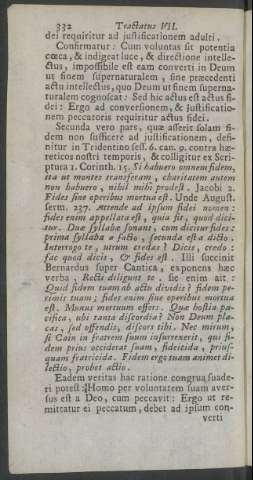 332 Tractatus VII.
dei requiritur ad justificationem adulti.
Confirmatur: Cum voluntas sit potentia
cœca, & indigeat luce, & directione intelle-
ctus, impossibile est eam converti in Deum
ut finem supernaturalem, sine præcedenti
actu intellectus, quo Deum ut finem superna-
turalem cognoscat: Sed hic actus est actus fi-
dei: Ergo ad conversionem, & justificatio-
nem peccatoris requiritur actus fidei.
Secunda vero pars, quæ asserit solam fi-
dem non sufficere ad justificationem, defi-
nitur in Tridentino sess. 6. can. 9. contra hæ-
reticos nostri temporis, & colligitur ex Scri-
ptura 1. Corinth. 13. Si habuero omnem fidem,
ita ut montes transferam, charitatem autem
non habuero, nihil mihi prodest. Jacobi 2.
Fides sine operibus mortua est. Unde August.
serm. 237. Attende ad ipsum fidei nomen:
fides enim appellata est, quia fit, quod dici-
tur. Duæ syllabæ sonant, cum dicitur fides:
prima syllaba a facto, secunda est a dicto.
Interrogo te, utrum credas? Dicis, credo:
fac quod dicis, & fides est. Illi succinit
Bernardus super Cantica, exponens hæc
verba: Recti diligunt te. sic enim ait:
Quid fidem tuam ab actu dividis? fidem pe-
rimis tuam; fides enim sine operibus mortua
est. Munus mortuum offers. Quæ hostia pa-
cifica, ubi tanta discordia? Non Deum pla-
cas, sed offendis, discors tibi. Nec mirum,
si Cain in fratrem suum insurrexerit, qui fi-
dem prius occiderat suam, fideicida, prius-
quam fratricida. Fidem ergo tuam animet di-
lectio, probet actio.
Eadem veritas hac ratione congrua suade-
ri potest: Homo per voluntatem suam aver-
sus est a Deo, cum peccavit: Ergo ut re-
mittatur ei peccatum, debet ad ipsum con-
verti